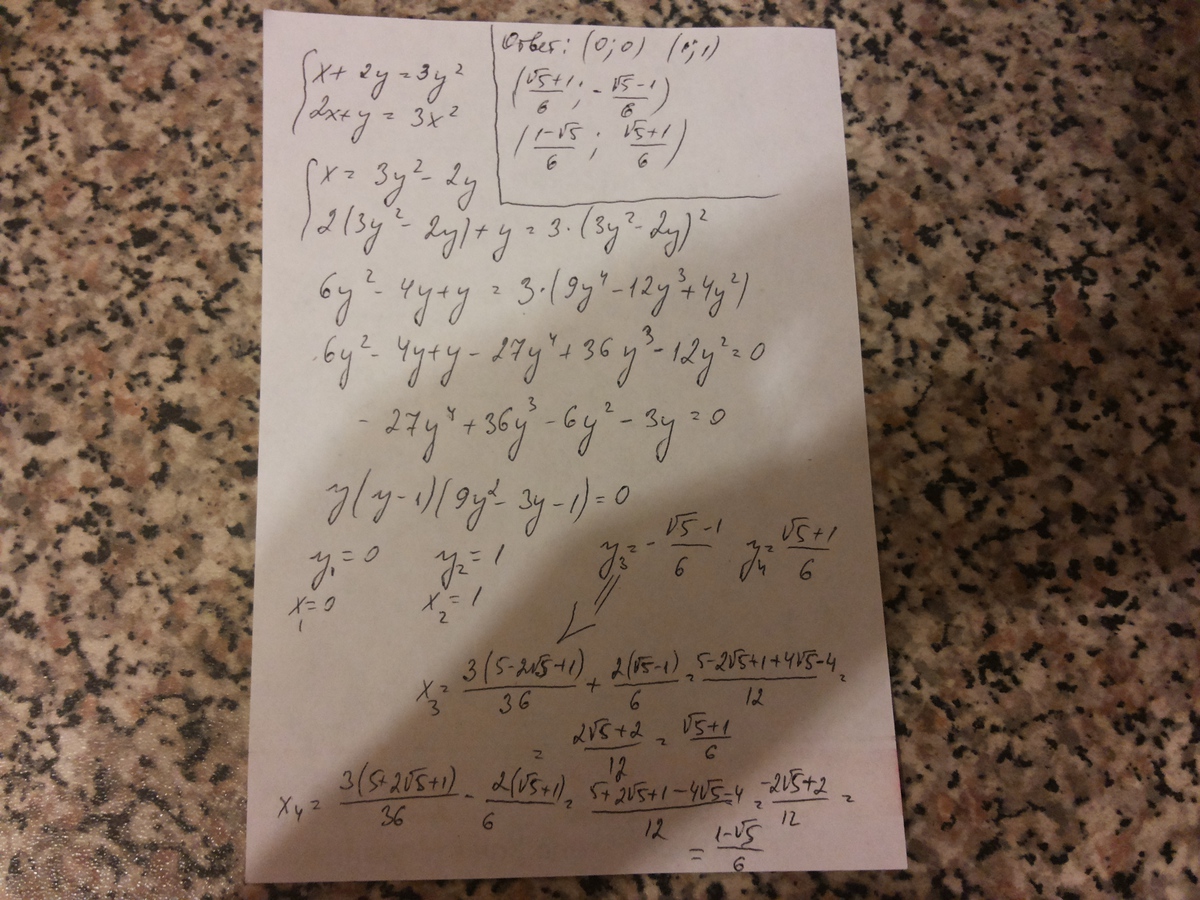 { x + 2y = 3y²
2x + y = 3x²
Ответ: (0; 0) (1; 1)
((√5+1)/6; -(√5-1)/6)
((1-√5)/6; (√5+1)/6)
{ x = 3y² - 2y
2(3y² - 2y) + y = 3·(3y² - 2y)²
6y² - 4y + y = 3·(9y⁴ - 12y³ + 4y²)
6y² - 4y + y - 27y⁴ + 36y³ - 12y² = 0
- 27y⁴ + 36y³ - 6y² - 3y = 0
y(y-1)(9y² - 3y - 1) = 0
y₁ = 0 y₂ = 1 y₃ = -(√5-1)/6 y₄ = (√5+1)/6
x₁ = 0 x₂ = 1
x₃ = 3(5-2√5+1)/36 + 2(√5-1)/6 = (5-2√5+1+4√5-4)/12 =
= (2√5+2)/12 = (√5+1)/6
x₄ = 3(5+2√5+1)/36 - 2(√5+1)/6 = (5+2√5+1-4√5-4)/12 = (-2√5+2)/12 =
= (1-√5)/6